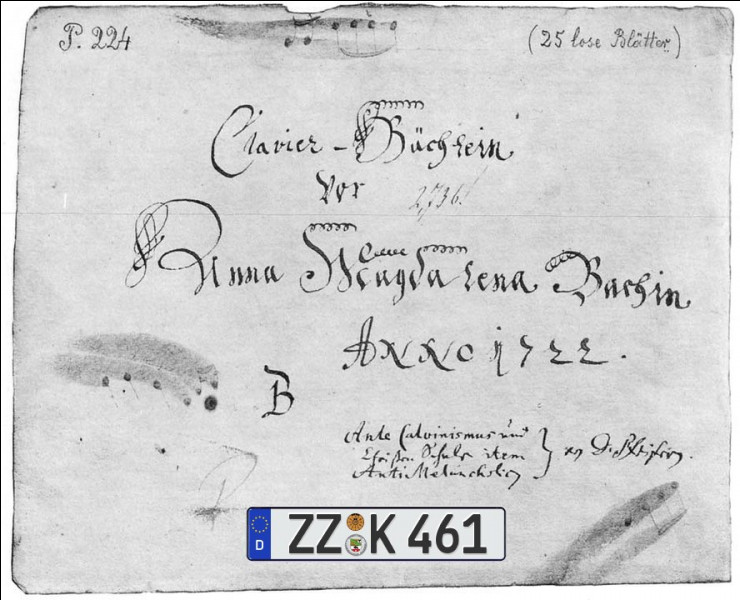 P. 224
(25 lose Blätter)
Clavier-Büchlein
vor
2736.
Anna Magdalena Bachin
ANNO 1722.
B
Ante Calvinismus und
Schule item
Anti Melancholicus
von D. Pfeifern.
D ZZ K 461